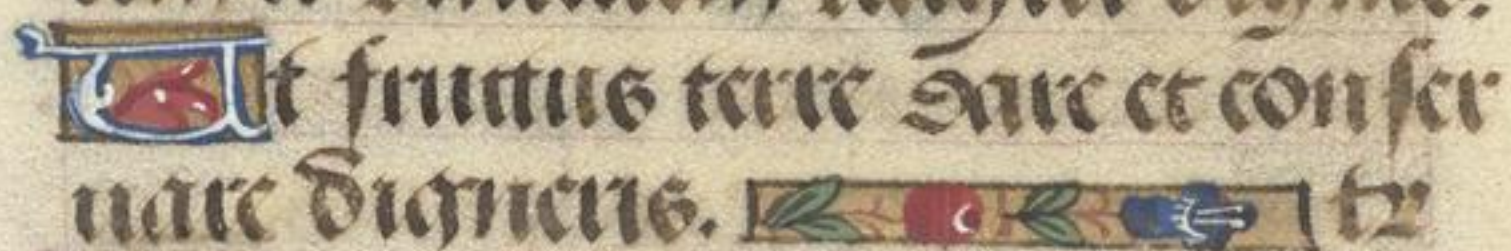 Ut fructus terre dare et cōnser
uare digneris. t​r